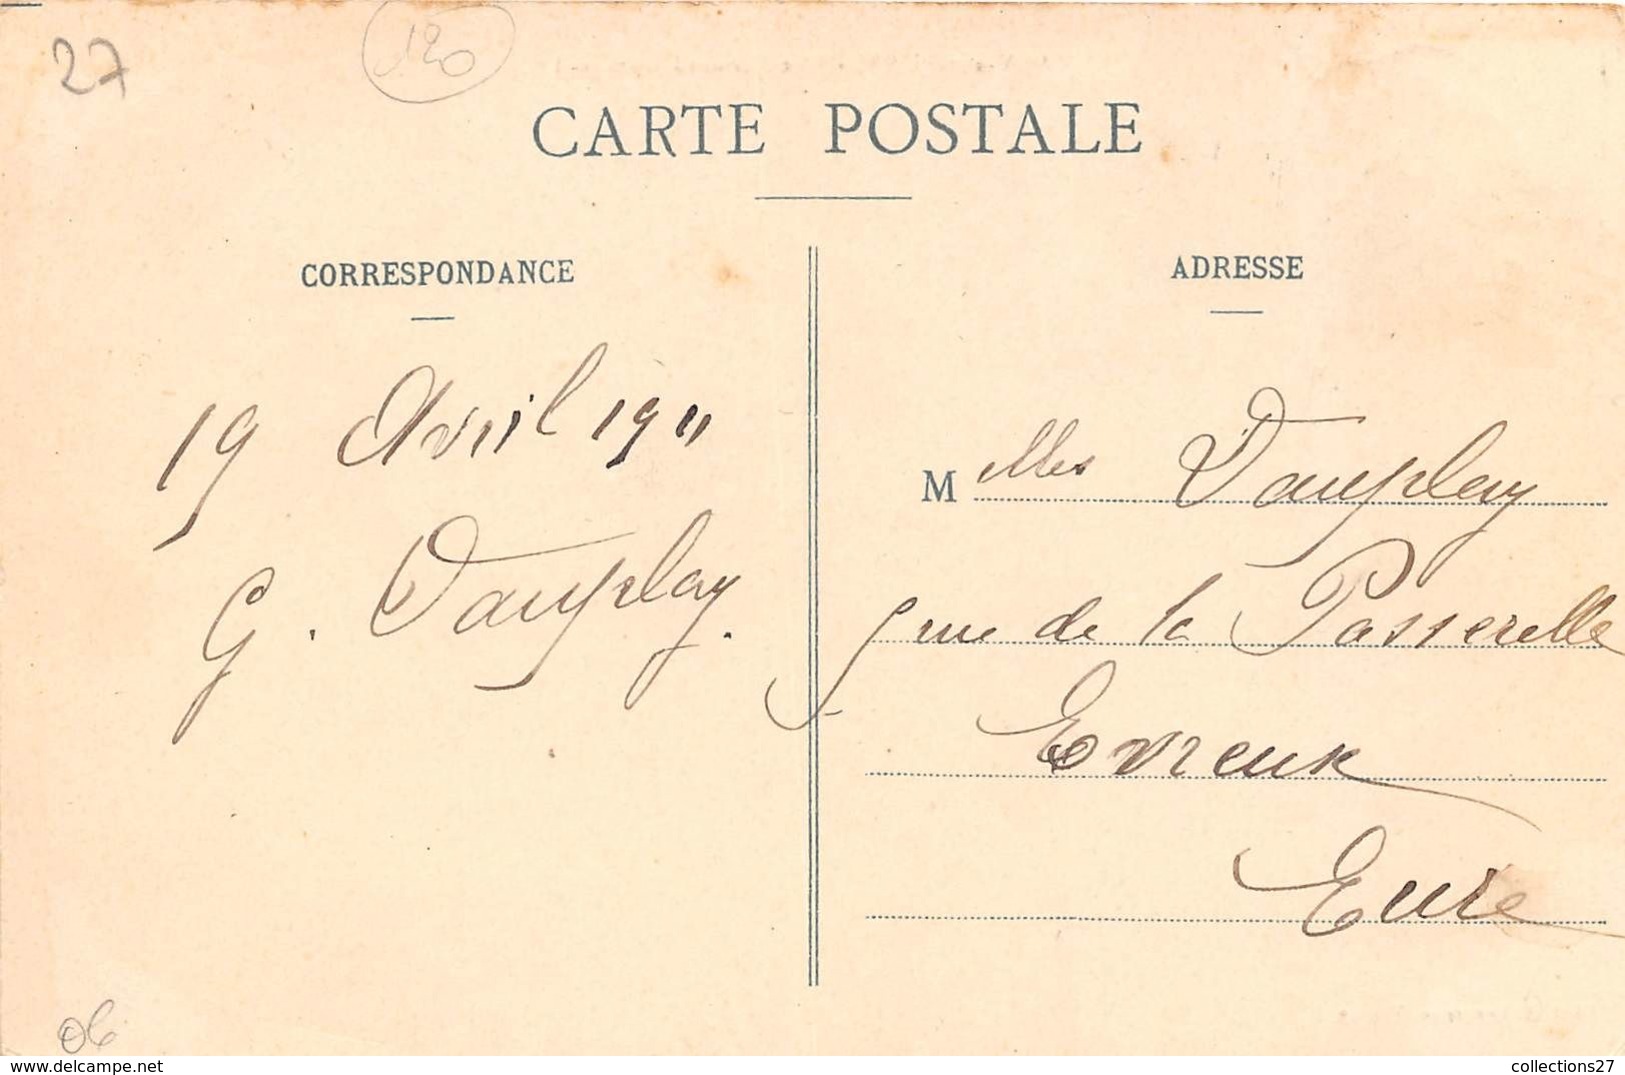 27
120
CARTE POSTALE
CORRESPONDANCE
19 Avril 1911
G. Dauplay.
ADRESSE
Melles Dauplay
5 rue de la Passerelle
Evreux
Eure
06
collections27